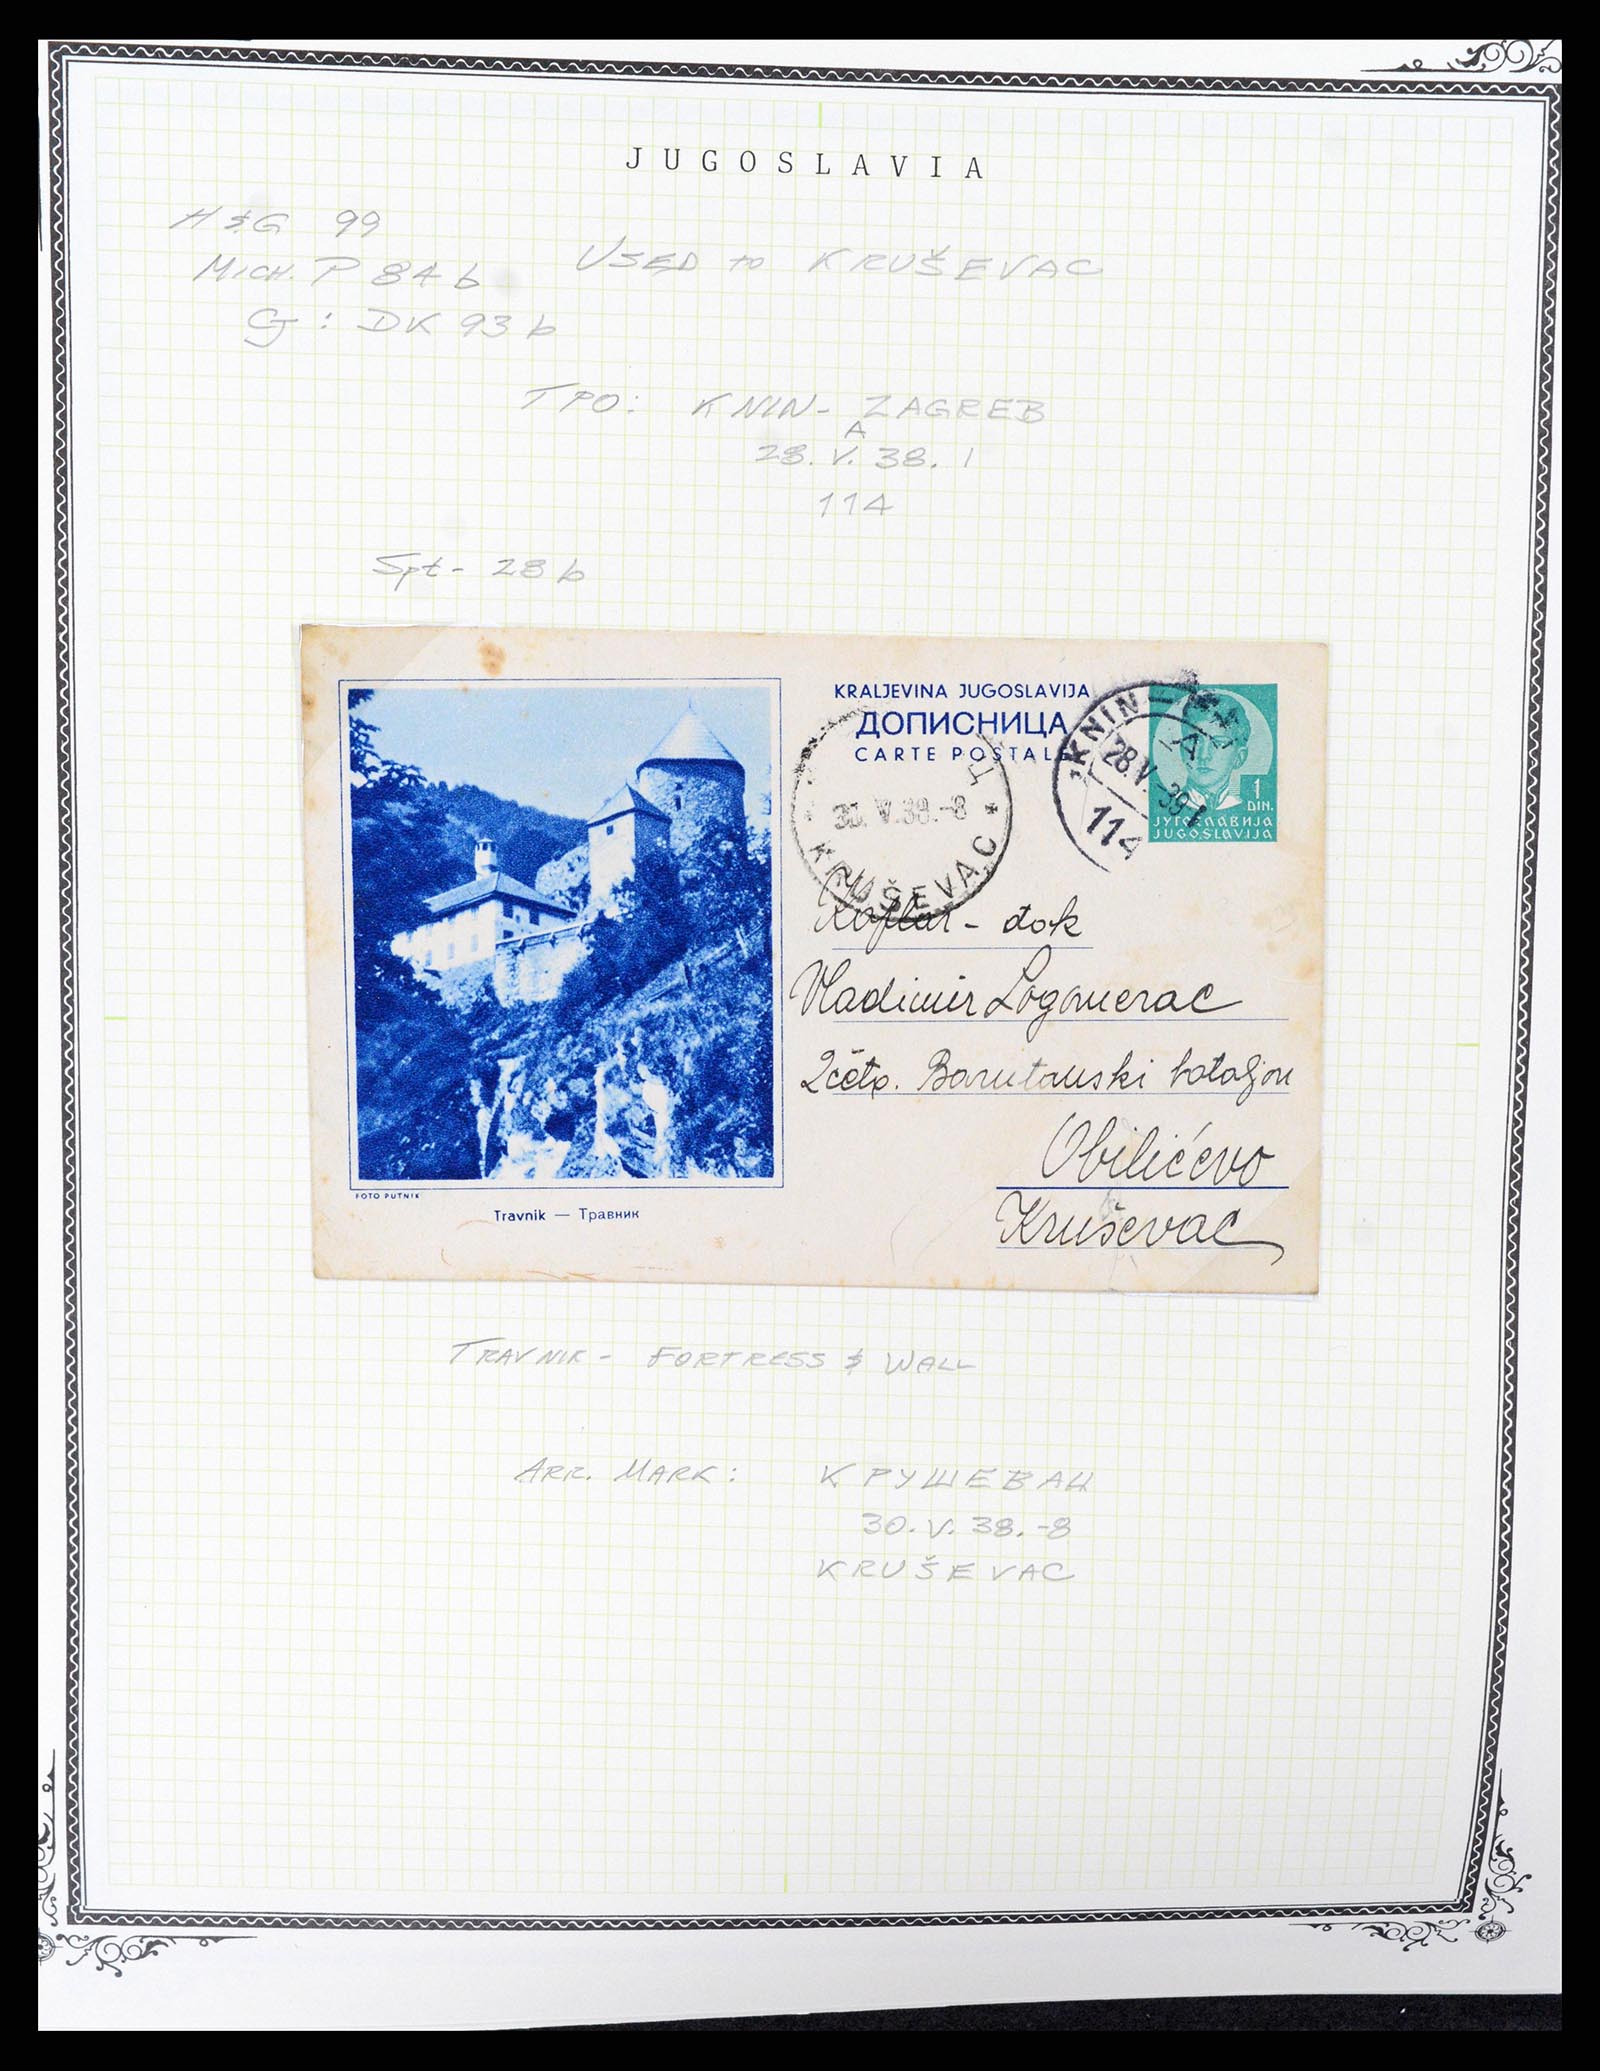 JUGOSLAVIA
H&G 99
MICH. P 84 b
USED to KRUŠEVAC
CJ: DK 93 b
TPO: KNIN - ZAGREB
A
28. V. 38. 1
114
Spt - 28 b
KRALJEVINA JUGOSLAVIJA
ДОПИСНИЦА
CARTE POSTALE
KNIN —
A
28.V.38-1
114
1
DIN.
ЈУГОСЛАВИЈА
JUGOSLAVIJA
Ц
30. V.38.-8
KRUŠEVAC
Kaplar - đok
Vladimir Logomerac
2 četa. Barutanski bataljon
Obilićevo
Kruševac
FOTO PUTNIK
Travnik — Травник
TRAVNIK - FORTRESS & WALL
ARR. MARK: КРУШЕВАЦ
30. V. 38. -8
KRUŠEVAC